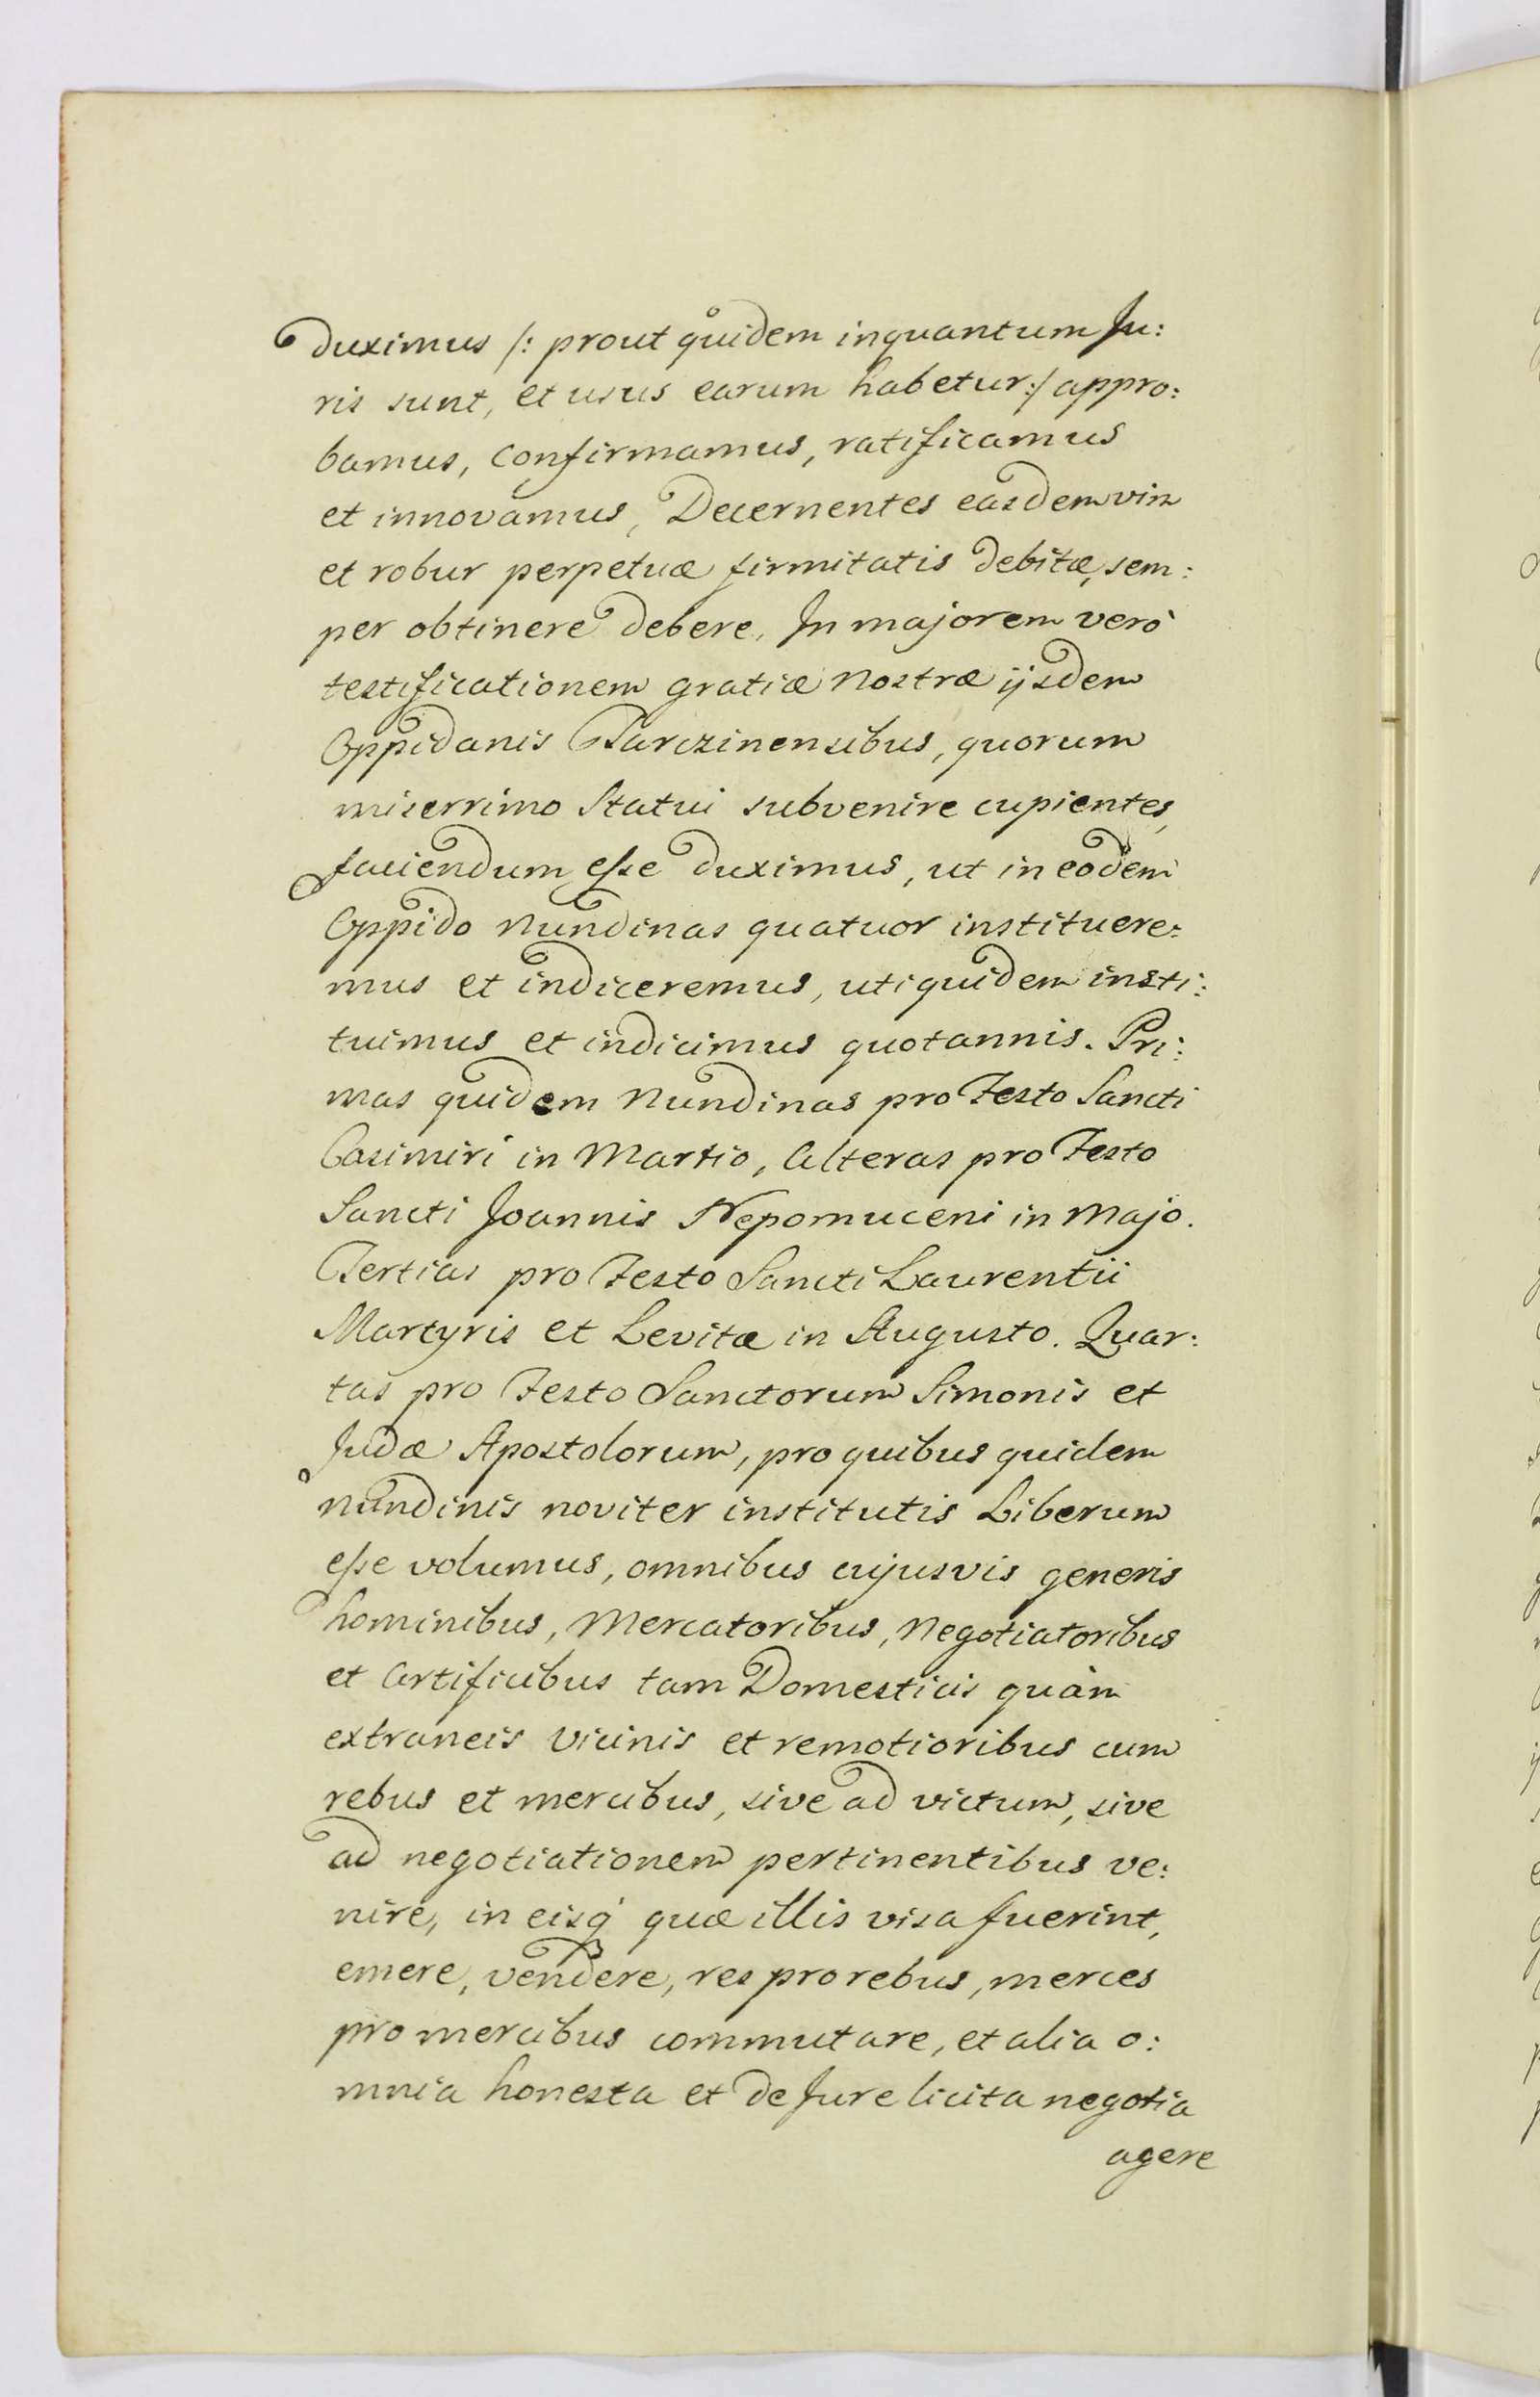 duximus /: prout quidem inquantum Ju:
ris sunt, et usus earum habetur :/ appro:
bamus, confirmamus, ratificamus
et innovamus, Decernentes easdem vim
et robur perpetuæ firmitatis debitæ, sem:
per obtinere debere, In majorem verò
testificationem gratiæ nostræ ijsdem
Oppidanis Tarczinensibus, quorum
miserrimo Statui subvenire cupientes,
faciendum esse duximus, ut in eodem
Oppido Nundinas quatuor instituere:
mus et indiceremus, uti quidem insti:
tuimus et indicimus quotannis. Pri:
mas quidem Nundinas pro Festo Sancti
Casimiri in Martio, Alteras pro Festo
Sancti Joannis Nepomuceni in Majo.
Tertias pro Festo Sancti Laurentii
Martyris et Levitæ in Augusto. Quar:
tas pro Festo Sanctorum Simonis et
Judæ Apostolorum, pro quibus quidem
nundinis noviter institutis Liberum
esse volumus, omnibus cujusvis generis
hominibus, Mercatoribus, Negotiatoribus
et Artificibus tam Domesticis quàm
extraneis Vicinis et remotioribus cum
rebus et mercibus, sive ad victum, sive
ad negotiationem pertinentibus ve:
nire, in eisq́ quæ illis visa fuerint,
emere, vendere, res pro rebus, merces
pro mercibus commutare, et alia o:
mnia honesta et de Jure licita negotia
agere